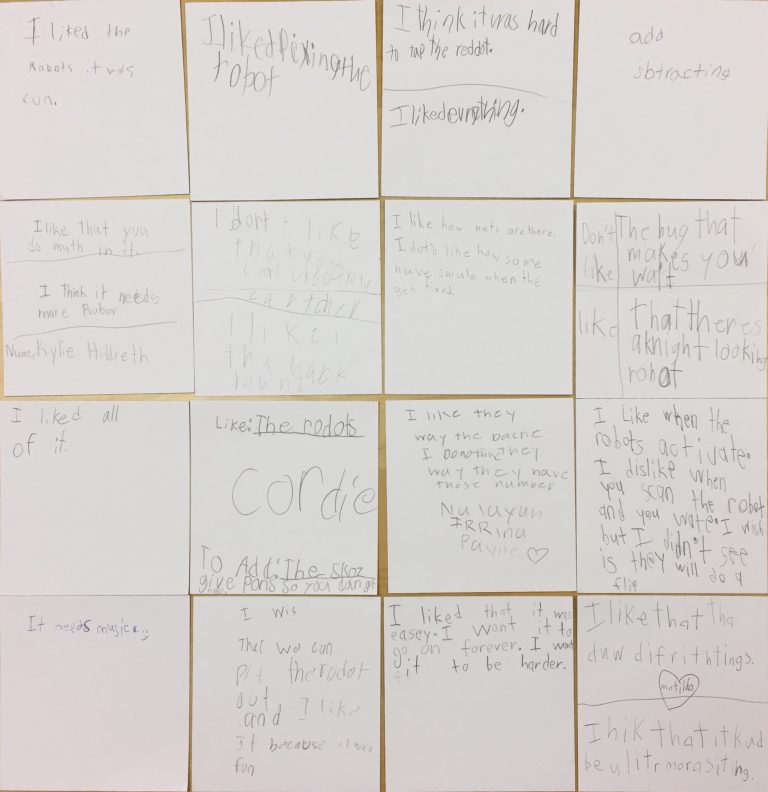 I liked the
Robots it was
fun.
I liked fixing the
robot
I think it was hard
to tap the reddot.
I liked evrything.
add
sbtracting
I like that you
do math in it.
I think it needs
more Robov
Name, Kylie Hildreth
I dont like
that you
cart
I like
the
I like how nets are there.
I dot'n like how some
have smule when the
get fixed
Don't
like
The bug that
makes you
wait
like
that theres
a knight looking
robot
I liked all
of it.
Like: The rodots
Cordie
To Add: The skoz
give pons so you can get
I like they
way the
I they
way they have
those number
Payne
I Like when the
robots activate.
I dislike when
you scan the robot
and you wate. I wish
but I didn't see
is they will do a
flip
It needs music
I wis
That we can
pit the rodot
out
and I like
It because it was
fun
I liked that it was
easey. I want it to
go on forever. I want
it to be harder.
I like that tha
duw difrithtings.
matilda
I hik that it kud
be u litr mor